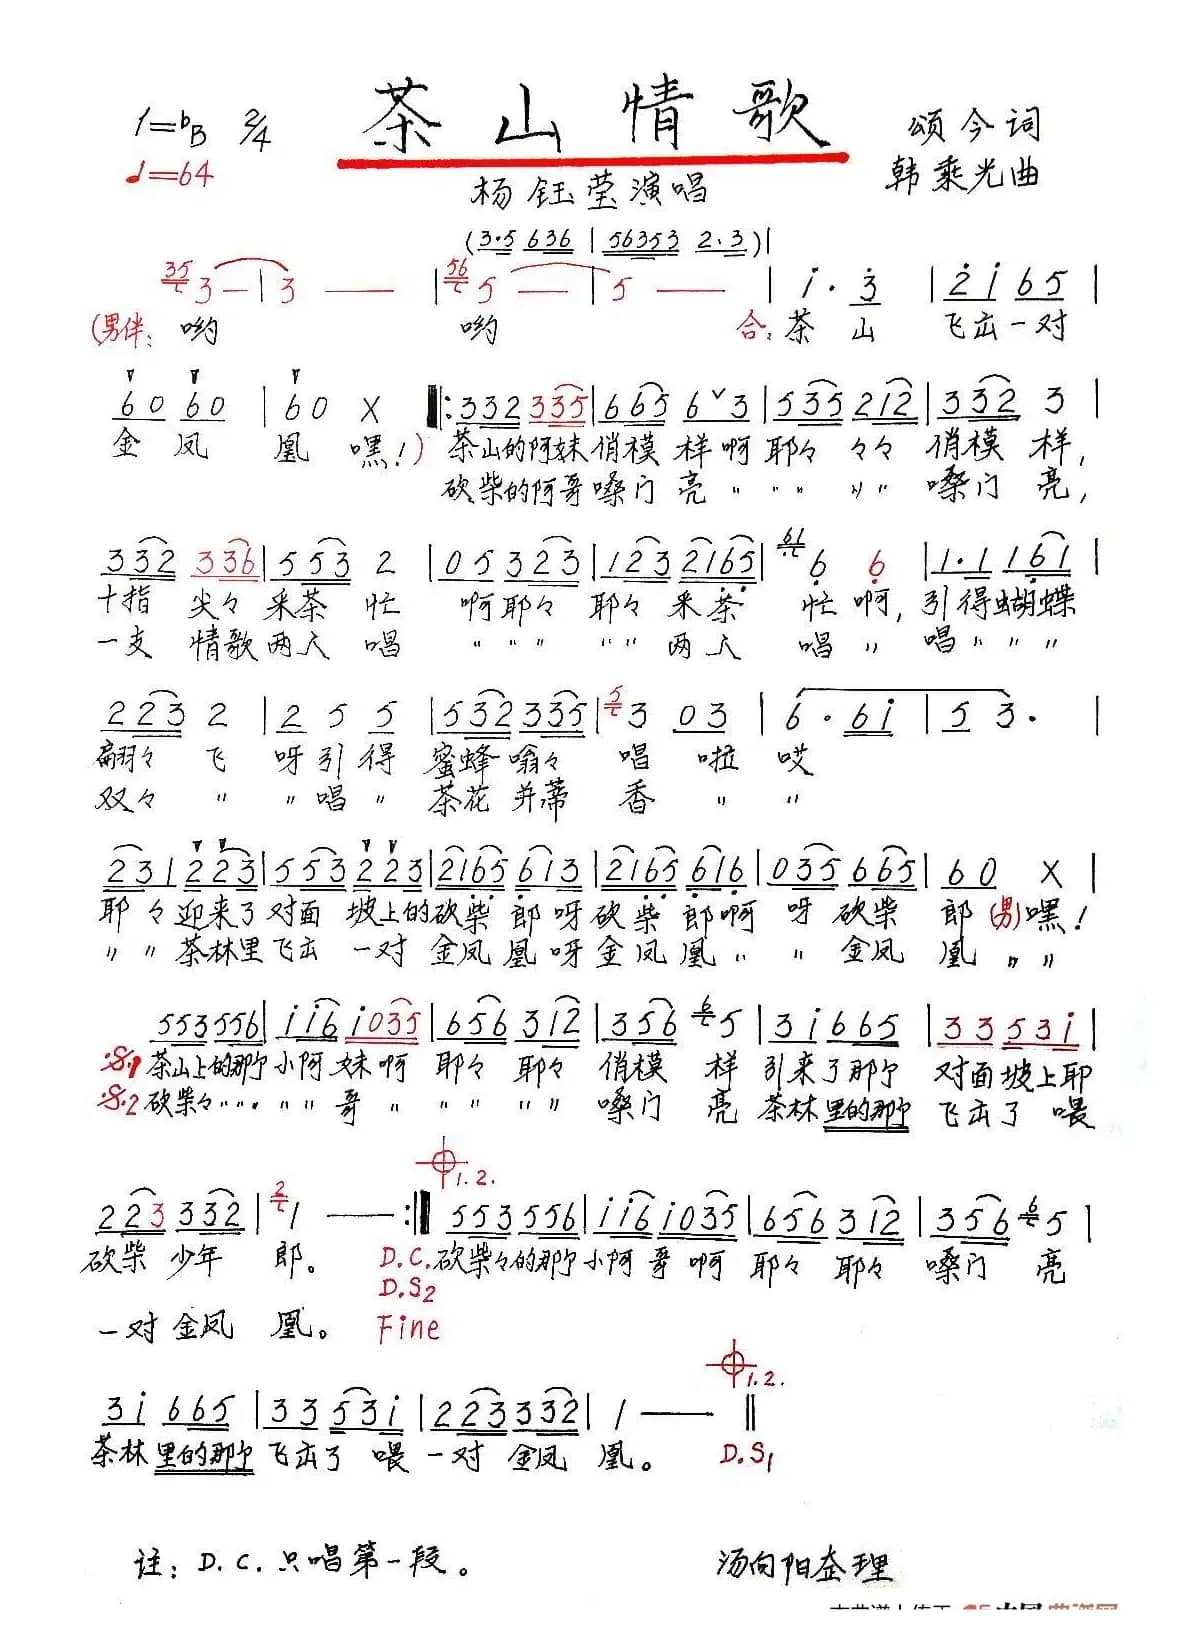 茶山情歌
1=♭B 2/4
♩=64
颂今词
韩乘光曲
杨钰莹演唱
(3·5 636 | 56353 2·3)|
35 3— | 3 — | 56 5 — | 5 — | i· 3 | 2 i 6 5 |
(男伴:哟 哟 合:茶 山 飞出一对
60 60 | 60 X ‖: 332 335 | 665 6ˇ3 | 535 212 | 332 3 |
金 凤 凰 嘿!) 茶山的阿妹俏模样啊耶々々々俏模样,
砍柴的阿哥嗓门亮〃〃〃〃〃嗓门亮,
332 336 | 553 2 | 05 323 | 123 2165 | 61 6 6 | 1·1 161 |
十指尖々采茶忙 啊耶々耶々采茶忙啊,引得蝴蝶
一支情歌两人唱〃〃〃〃〃两人唱〃唱〃〃〃
223 2 | 2 5 5 | 532 335 | 5 3 03 | 6·6i | 5 3· |
翩々飞呀引得蜜蜂嗡々唱啦哎
双々〃〃唱〃茶花并蒂香〃〃
23 | 2 23 | 553 2 2 3 | 2165 613 | 2165 616 | 035 665 | 60 X |
耶々迎来了对面坡上的砍柴郎呀砍柴郎啊呀砍柴郎(男)嘿!
〃〃茶林里飞出一对金凤凰呀金凤凰〃〃金凤凰〃〃
553556 | i i6 i035 | 656 3i2 | 356 6 5 | 3i 665 | 33 53i |
:S:1 茶山上的那个小阿妹啊耶々耶々俏模样引来了那个对面坡上耶
:S:2 砍柴々〃〃〃〃〃哥〃〃〃〃〃嗓门亮茶林里的那个飞出了喂
1.2.
223 332 | 2 1 — :‖ 553556 | i i6 i035 | 656 3i2 | 356 6 5 |
砍柴少年郎。 D.C. 砍柴々的那个小阿哥啊耶々耶々嗓门亮
D.S2
一对金凤凰。 Fine
1.2.
3i 665 | 33 53i | 223 332 | 1 — ‖
茶林里的那个飞出了喂一对金凤凰。 D.S1
注:D.C.只唱第一段。
汤向阳整理